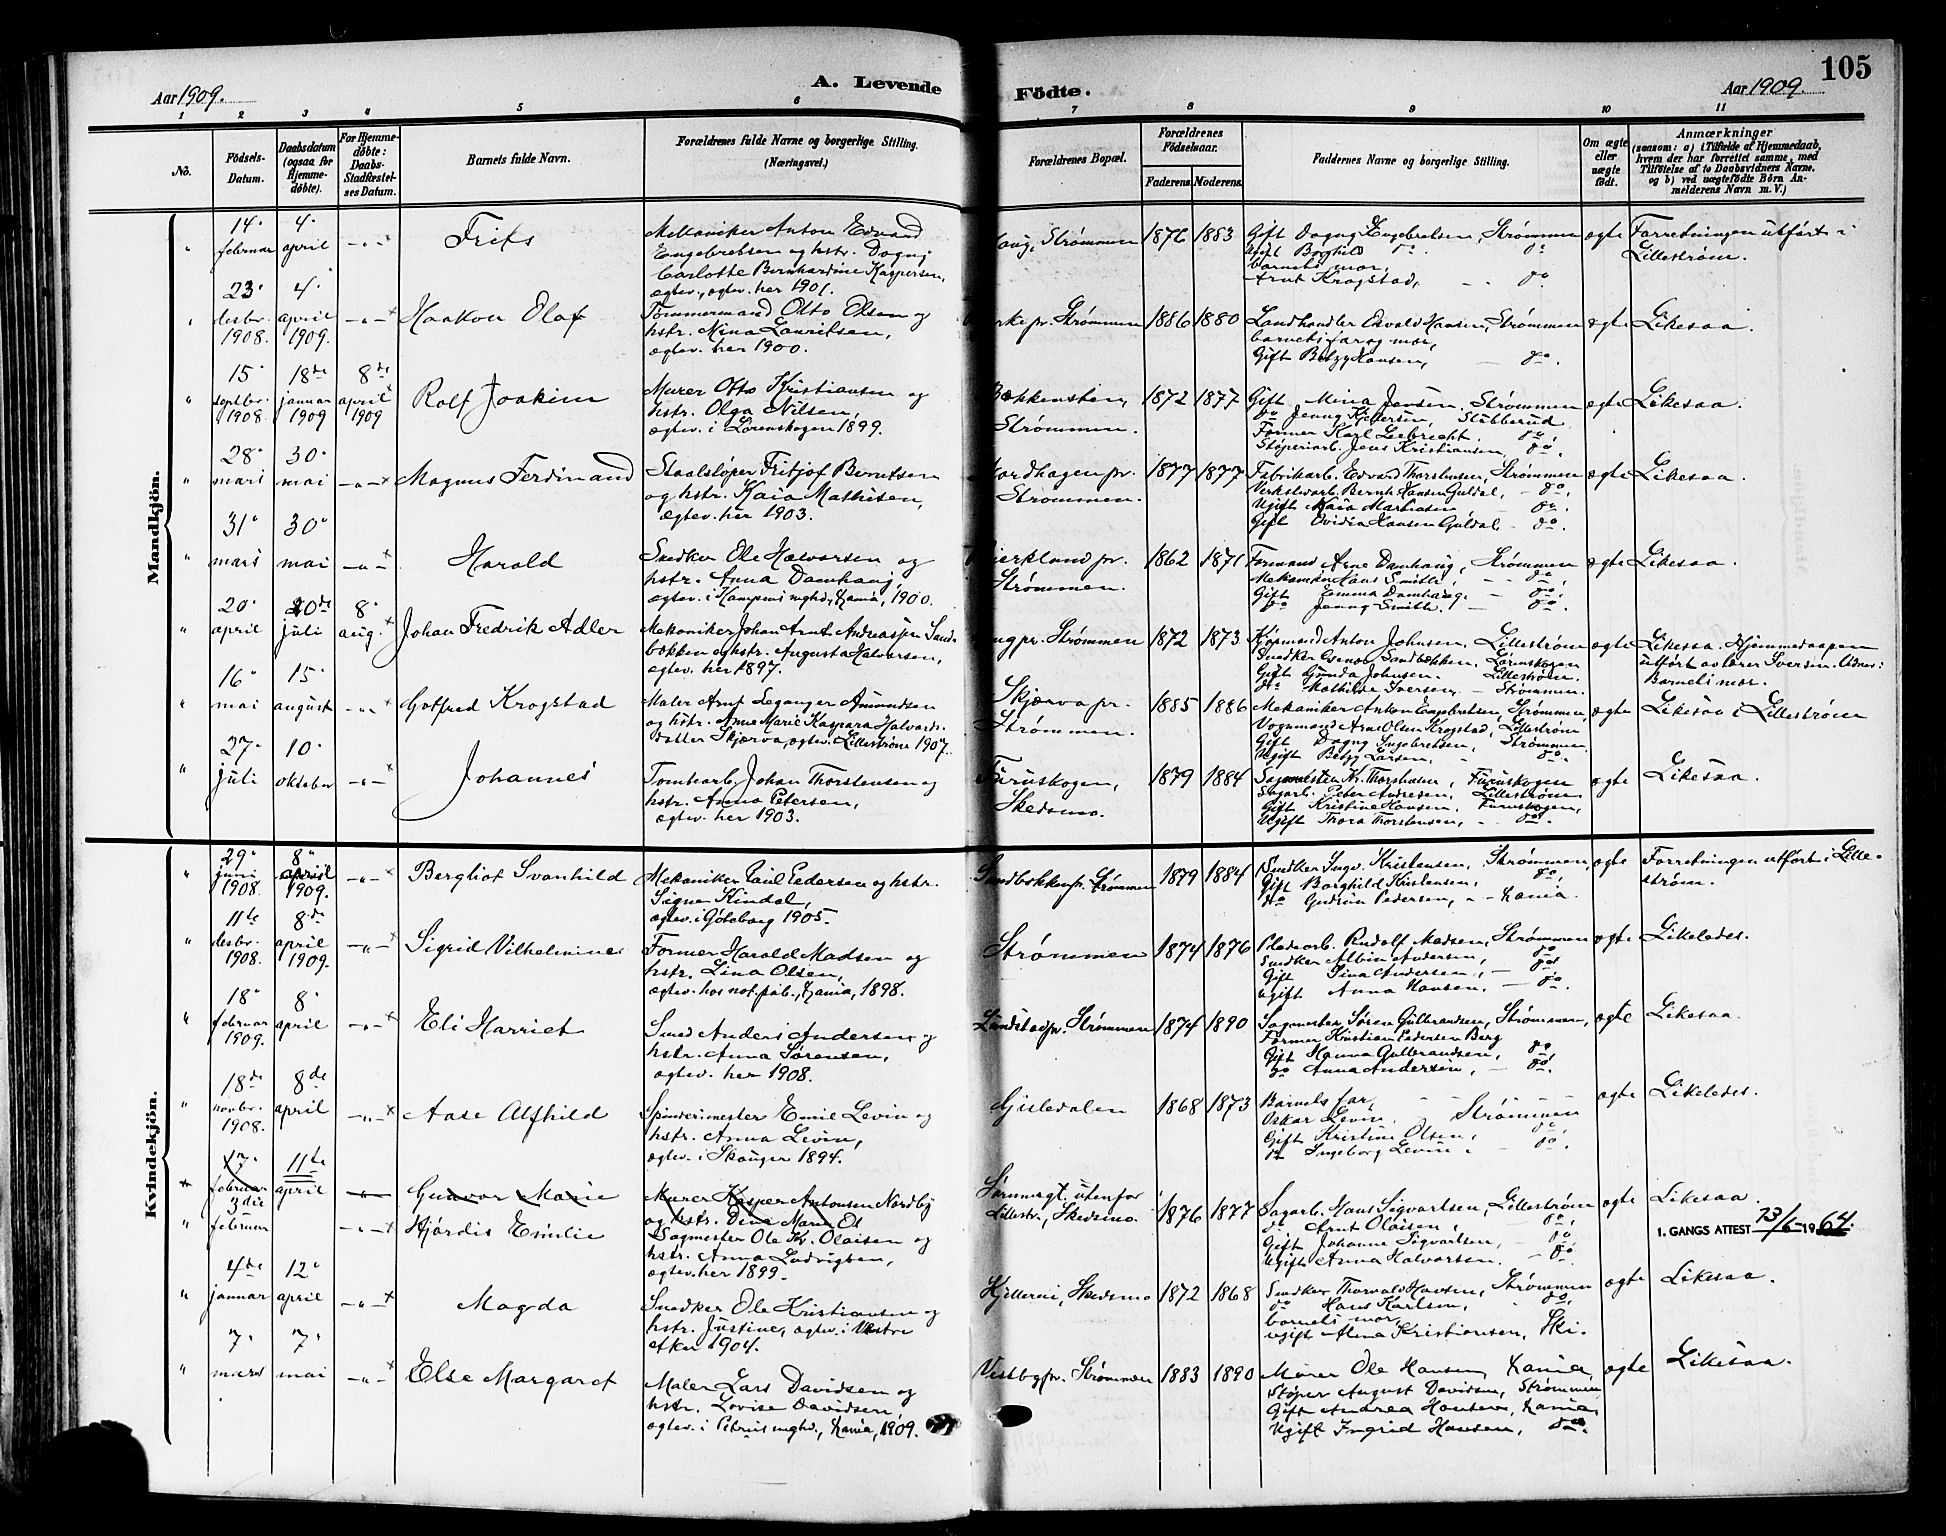 105
Aar 1909.
A. Levende
Födte.
Aar 1909
1 2 3 4 5 6 7 8 9 10 11
No.
Födsels-Datum.
Daabsdatum (ogsaa for Hjemmedöbte).
For Hjemmedöbte: Daabs-Stadfæstelses Datum.
Barnets fulde Navn.
Forældrenes fulde Navne og borgerlige Stilling. (Næringsvei.)
Forældrenes Bopæl.
Forældrenes Födselsaar.
Faderens. Moderens.
Faddernes Navne og borgerlige Stilling.
Om ægte eller uægte födt.
Anmærkninger
(saasom: a) i Tilfælde af Hjemmedaab, hvem der har forrettet samme, med Tilföielse af to Daabsvidners Navne, og b) ved uægtefödte Börn Anmelderens Navn m. V.)
Mandkjön.
14. februar
4. april
Frits
Mekaniker Anton Edvard
Engebretsen og hstr. Dagny
Carlotte Bernhardine Kaspersen,
ægtev. her 1901.
Strømmen
1876 1883
Gift Dagny Engebretsen, Strømmen
Ugift Borghild do. do
barnets mor,
Arnt Krogstad, do
ægte
Forretningen utført i
Lillestrøm.
23. desbr. 1908.
4. april 1909.
Haakon Olaf
Tømmermand Otto Olsen og
hstr. Mina Lauritsen,
ægtev. her 1900.
pr. Strømmen
1886 1880
Landhandler Esvald Hansen, Strømmen
barnets far og mor,
Gift Betzy Hansen, do.
ægte
Likesaa.
15. septbr. 1908
18de januar 1909
8de april 1909
Rolf Joakim
Murer Otto Kristiansen og
hstr. Olga Nilsen,
ægtev. i Lørenskogen 1899.
Bækkensten,
Strømmen.
1872 1877
Gift Mina Jensen, Strømmen
do Jenny Kjellersen, Stubberud
Former Karl Liebrecht. do.
Støperiarb. Jens Kristiansen, do.
ægte
Likesaa.
28. mars
30. mai
Magnus Ferdinand
Staalstøper Fritjof Berntsen
og hstr. Kaia Mathisen,
ægtev. her 1903.
Nordhagen pr.
Strømmen.
1877 1877
Fabrikarb. Edvard Thorstensen, Strømmen
Verkstedarb. Bernh. Hansen Guldal, do.
Ugift Kaia Mathisen do.
Gift Ovidia Hansen Guldal do.
ægte
Likesaa.
31. mars
30. mai
Harald
Snedker Ole Halvorsen og
hstr. Anna Damhaug,
ægtev. i Kampens mghd., Kania, 1900.
Bjerkland pr.
Strømmen.
1862 1871
Formand Arne Damhaug, Strømmen
Mekaniker Hans Smitte, do
Gift Emma Damhaug, do.
do Jenny Smitte, do.
ægte
Likesaa.
20. april
20de juli
8. aug.
Johan Fredrik Adler
Mekaniker Johan Arnt Andreassen Sand-
bækken og hstr. Augusta Halvorsen,
ægtev. her 1897.
pr. Strømmen
1872 1873
Kjørmand Anton Johnsen, Lillestrøm
Snedker Sandbækken, Lørenskogen
Gift Gunda Johnsen. Lillestrøm.
do Mathilde Iversen, Strømmen.
ægte
Likesaa. Hjemmedaapen
utført av lærer Iversen.
Barnets mor.
16. mai
15. august
Gotfred Krogstad
Maler Arnt Leganger Amundsen
og hstr. Anne Marie Kaspara Halvords-
datter Skjærva, ægtev. Lillestrøm 1907.
Skjærva pr.
Strømmen.
1885 1886
Mekaniker Anton Engebretsen, Strømmen,
Vognmand Arne Olsen Krogstad, Lillestrøm
Gift Dagny Engebretsen, Strømmen
Ugift Betzy Larsen, do.
ægte
Likesaa i Lillestrøm
27. juli
10. oktober
Johannes
Tomtearb. Johan Thorstensen og
hstr. Anna Petersen,
ægtev. her 1903.
Furuskogen,
Skedsmo.
1879 1884
Kr. Thorstensen, Furuskogen
Sagarb. Peter Andresen, Lillestrøm
Gift Kristine Hansen, Furuskogen,
Ugift Thora Thorstensen, do.
ægte
Likesaa.
Kvindekjön.
29. juni 1908.
8. april 1909.
Bergliot Svanhild
Mekaniker Paul Pedersen og hstr.
Signe Kindal,
ægtev. i Göteborg 1905.
Sandbækken pr. Strømmen
1879 1884
Snedker Ingv. Kristensen, Strømmen,
Gift Borghild Kristensen, do,
do Gudrun Pedersen, Kania.
ægte
Forretningen utført i Lille-
strøm.
11te desbr. 1908.
8de april 1909.
Sigrid Vilhelmine
Former Harald Madsen og
hstr. Lina Olsen,
ægtev. hos not. pub., Kania, 1898.
Strømmen
1874 1876
Pladearb. Rudolf Madsen, Strømmen
Snedker Albin Andersen, do
Gift Lina Andersen, do
Ugift Anna Hansen, do.
ægte
Likeledes.
18. februar 1909.
8. april
Eli Harriet
Smed Anders Andersen og
hstr. Anna Sørensen,
ægtev. her 1908.
pr. Strømmen
1874 1890
Sagmester Søren Gulbrandsen, Strømmen,
Former Kristian Pedersen Berg
Gift Hanna Gulbrandsen, do
do Anna Andersen, do.
ægte
Likesaa.
18de novbr. 1908.
8de april
Aase Alfhild
Spinderimester Emil Levin og
hstr. Anna Levin,
ægtev. i Skouger 1894.
Gisledalen
1868 1873
Barnets far,
Oskar Levin, Strømmen
Gift Kristine Olsen, do.
do Ingeborg Levin, do.
ægte
Likeledes.
17. februar
11te april
Gunvor Marie
Murer Kasper Antonsen Nordby
og hstr. Dina Marie Ol
3die februar
Hjørdis Emilie
Sagmester Ole Kr. Olaisen og
hstr. Anna Ludvigsen,
ægtev. her 1899.
Sørumsgt. utenfor
Lillestr., Skedsmo.
1876 1877
Sagarb. Hans Sigvartsen, Lillestrøm
do Arnt Olaisen, do.
Gift Johanne Sigvartsen, do
Ugift Anna Halvorsen. do.
ægte
Likesaa.
1. GANGS ATTEST 13/6-1964.
4de januar
12. april
Magda
Snedker Ole Kristiansen og
hstr. Justine, ægtev. i Vestre
Aker 1904.
Hjellerei, Skedsmo
1872 1868
Snedker Thorvald Hansen, Strømmen
do Hans Karlsen, do,
barnets mor,
Ugift Alma Kristiansen, Ski.
ægte
Likesaa.
7. mars
7. mai
Else Margaret
Maler Lars Davidsen og
hstr. Lovise Davidsen,
ægtev. i Petrus mghd., Kania, 1909.
Vestby pr. Strømmen
1883 1890
Murer Ole Hansen, Kania,
Støper August Davidsen, Strømmen
Gift Andrea Hansen, Kania,
Ugift Ingrid Hansen, do.
ægte
Likesaa.